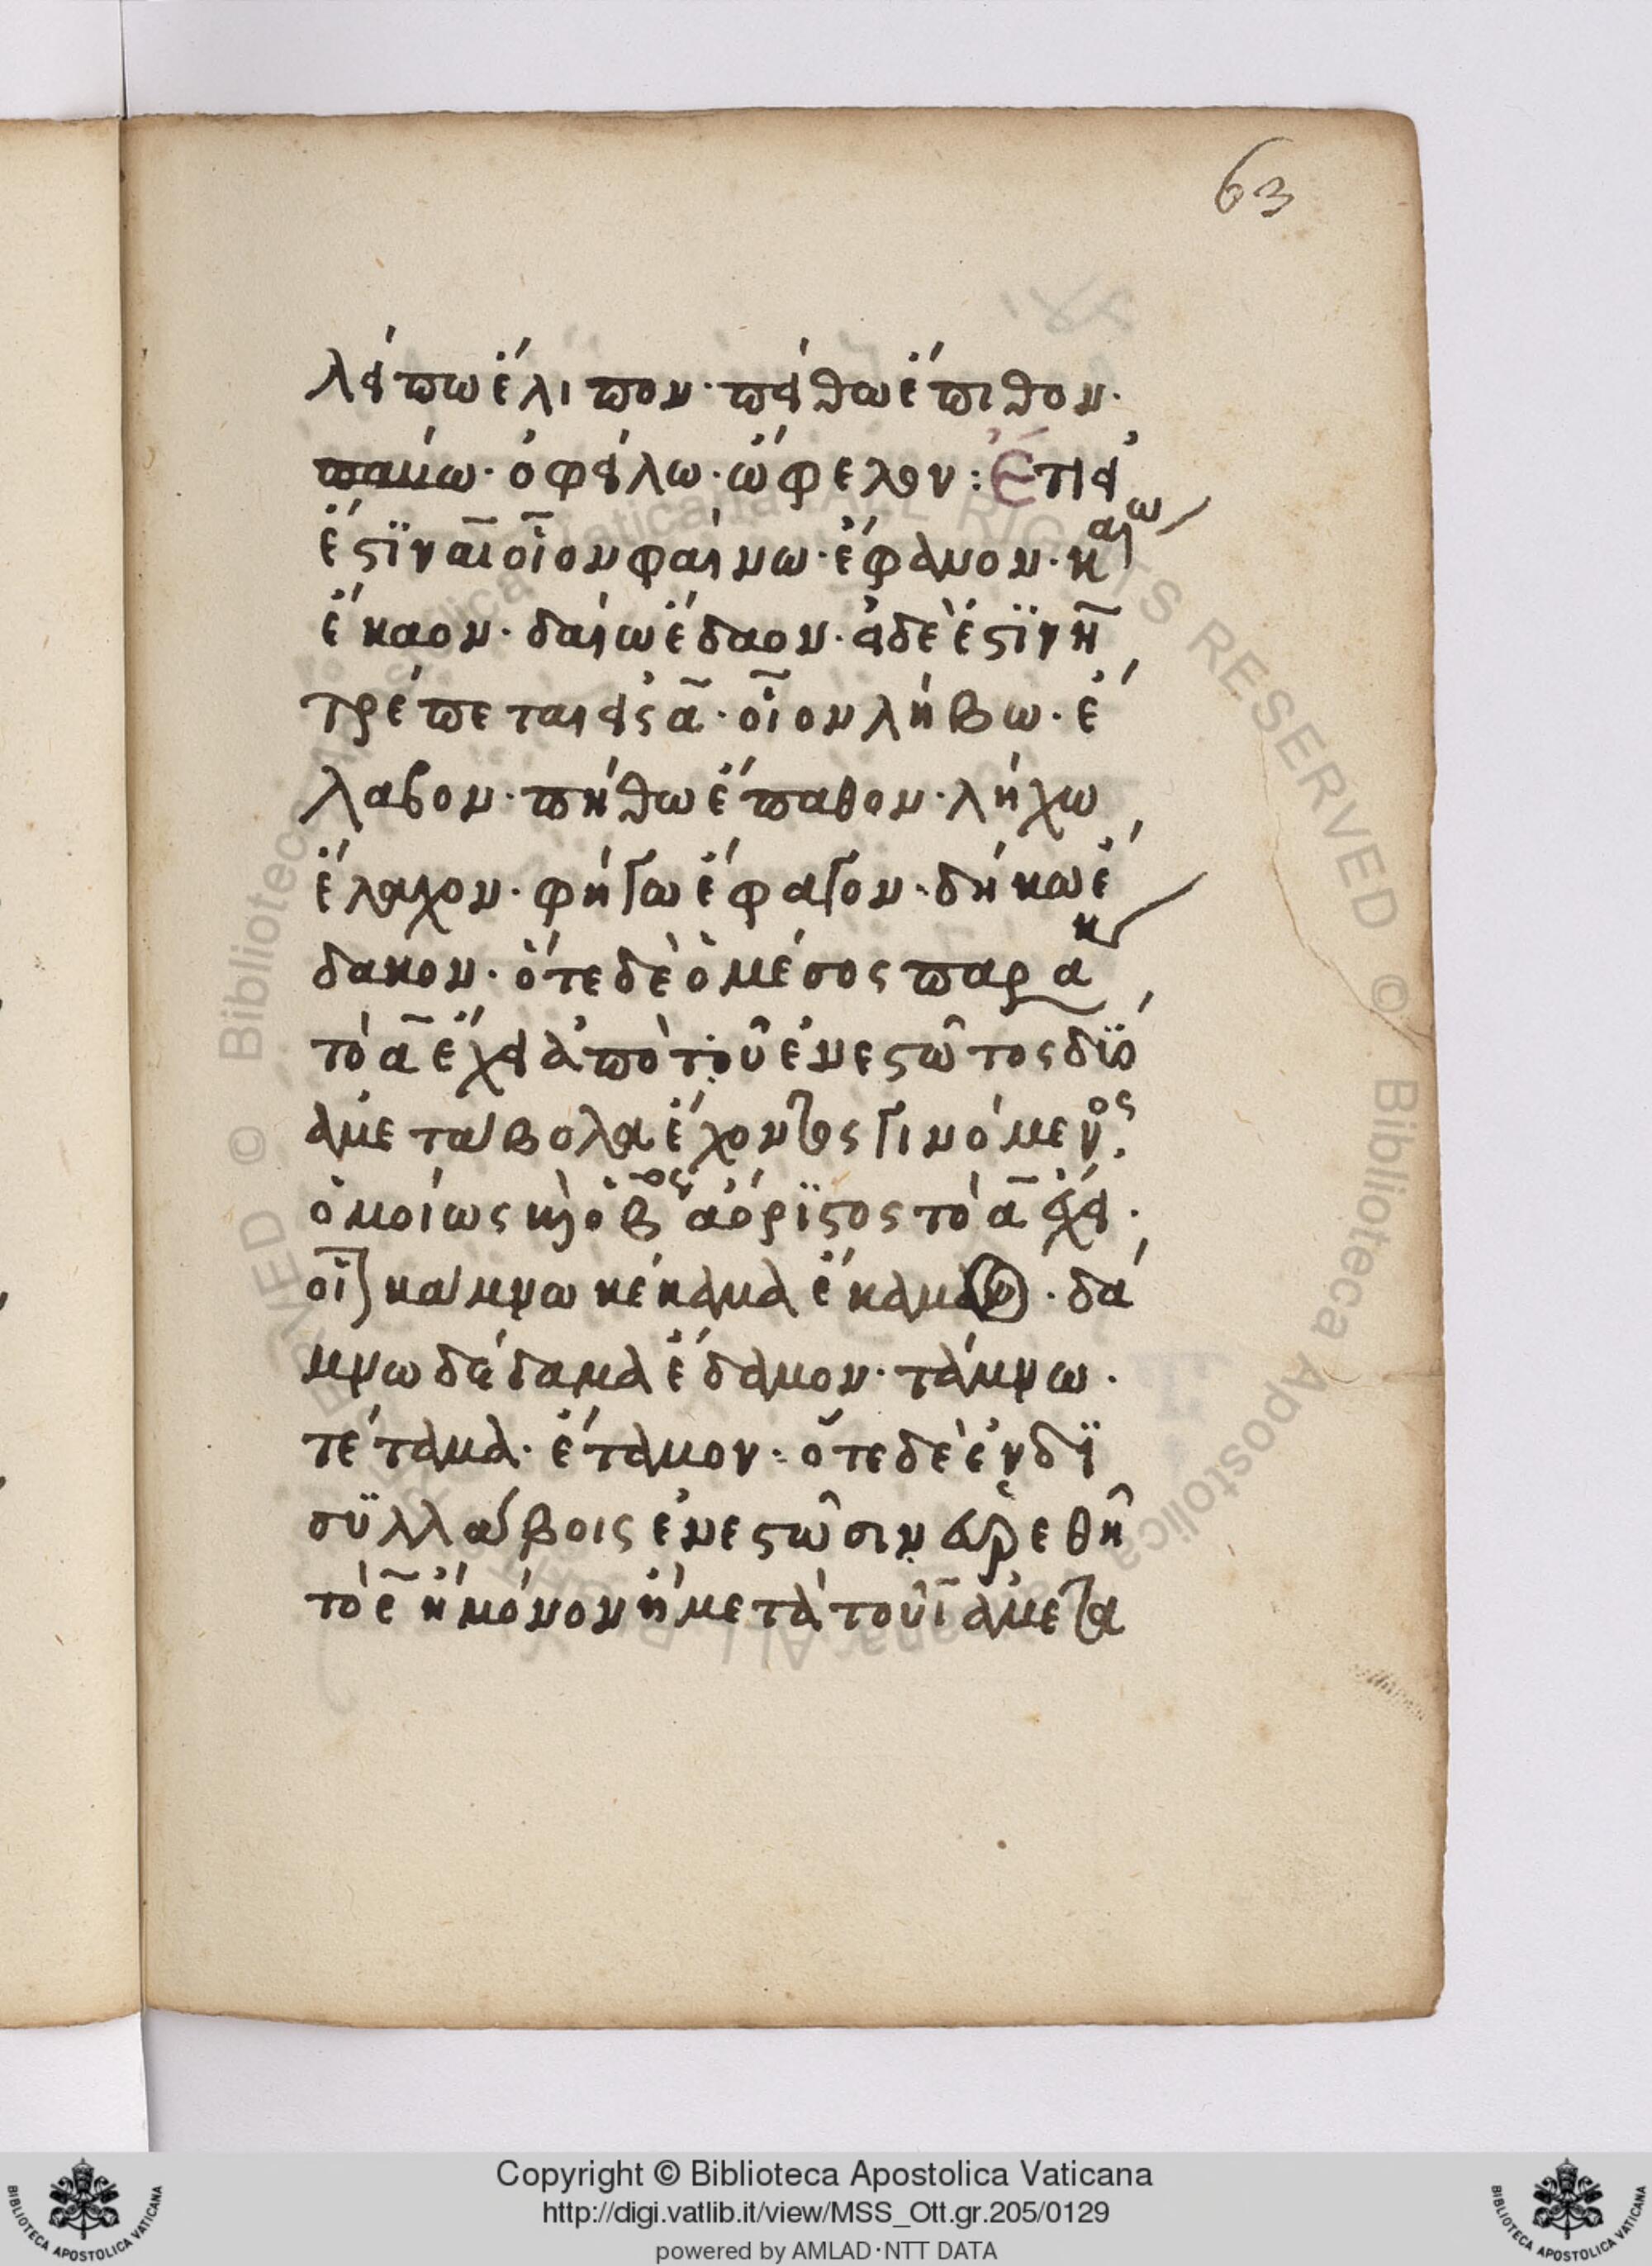 63
λείπω ἔλιπον· πείθω ἔπιθον·
ὀφείλω· ὤφελον: Ἐπεὶ
ἔστιν αι οἷον φαίνω· ἔφανον· καίω
ἔκαον· δαίω ἔδαον· εἰ δὲ ἔστιν η
τρέπεται εἰς α· οἷον λήβω· ἔ
λαβον· πήθω ἔπαθον· λήχω
ἔλαχον· φήγω ἔφαγον· δήκω ἔ
δακον· ὅτε δὲ ὁ μέσος παρακει
τὸ α ἔχει ἀπὸ τοῦ ἐνεστῶτος διὸ
ἀμεταβολα ἔχοντος γινόμενος:
ὁμοίως καὶ ὁ βος ἀόριστος τὸ α ἔχει·
οἷον κάμνω κέκαμα ἔκαμον· δά
μνω δέδαμα ἔδαμον· τάμνω·
τέταμα· ἔταμον· ὅτε δὲ ἐν δι
συλλάβοις ἐνεστῶσιν εὑρεθῆ
τὸ ε ἢ μόνον ἢ μετὰ τοῦ ι ἀμετα
Copyright © Biblioteca Apostolica Vaticana
http://digi.vatlib.it/view/MSS_Ott.gr.205/0129
powered by AMLAD·NTT DATA
BIBLIOTECA APOSTOLICA VATICANA
BIBLIOTECA APOSTOLICA VATICANA